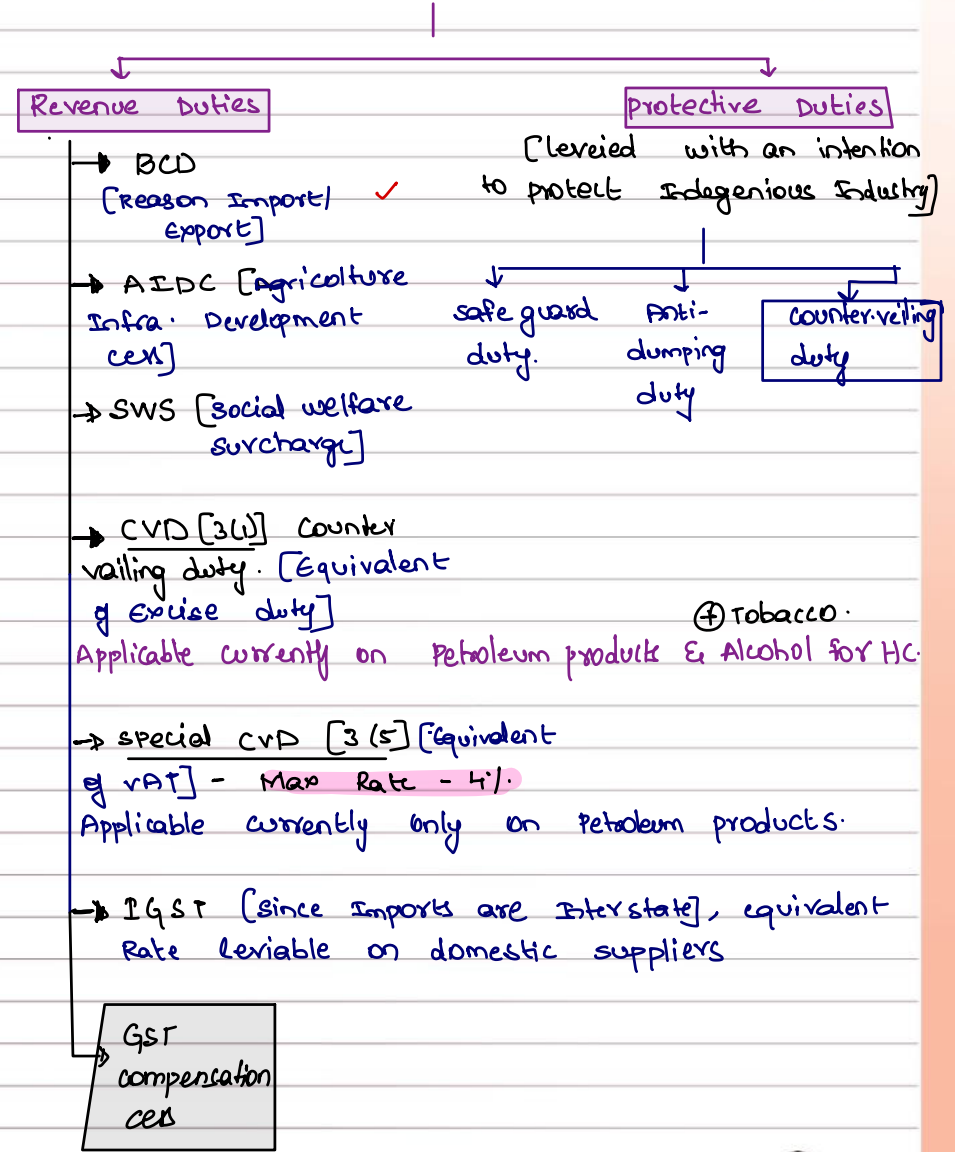 Revenue Duties
→ BCD
[Reason Import/
Export] ✓
→ AIDC [Agricolture
Infra. Development
cess]
→ SWS [Social welfare
surcharge]
→ CVD [3(1)] Counter
vailing duty. [Equivalent
of Excise duty]
⊕ Tobacco.
Applicable currently on Petroleum products & Alcohol for HC.
→ Special CVD [3(5] [Equivalent
of VAT] - Max Rate - 4%.
Applicable currently only on Petroleum products.
→ IGST [Since Imports are Interstate], equivalent
Rate leviable on domestic suppliers
GST
compensation
cess
Protective Duties
[leveied with an intention
to protect Indegenious Industry]
safe guard
duty.
Anti-
dumping
duty
counter.veiling
duty